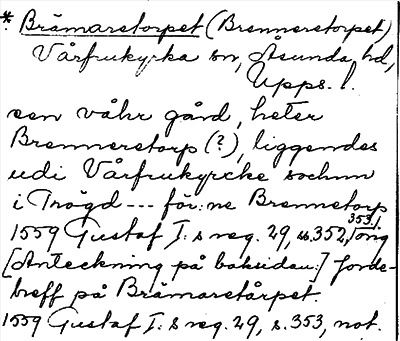 * Brämaretorpet (Brenneretorpet)
Vårfrukyrka sn, Åsunda hd,
Upps. l.
een våhr gård, heter
Brenneretorp (?), liggendes
udi Vårfrukyrcke sochnn
i Trögd --- för:ne Brennetorp
1559 Gustaf I:s reg. 29, s. 352, 353, orig
[Anteckning på baksidan:] Jorde-
breff på Brämaretårpet.
1559 Gustaf I:s reg. 29, s. 353, not.